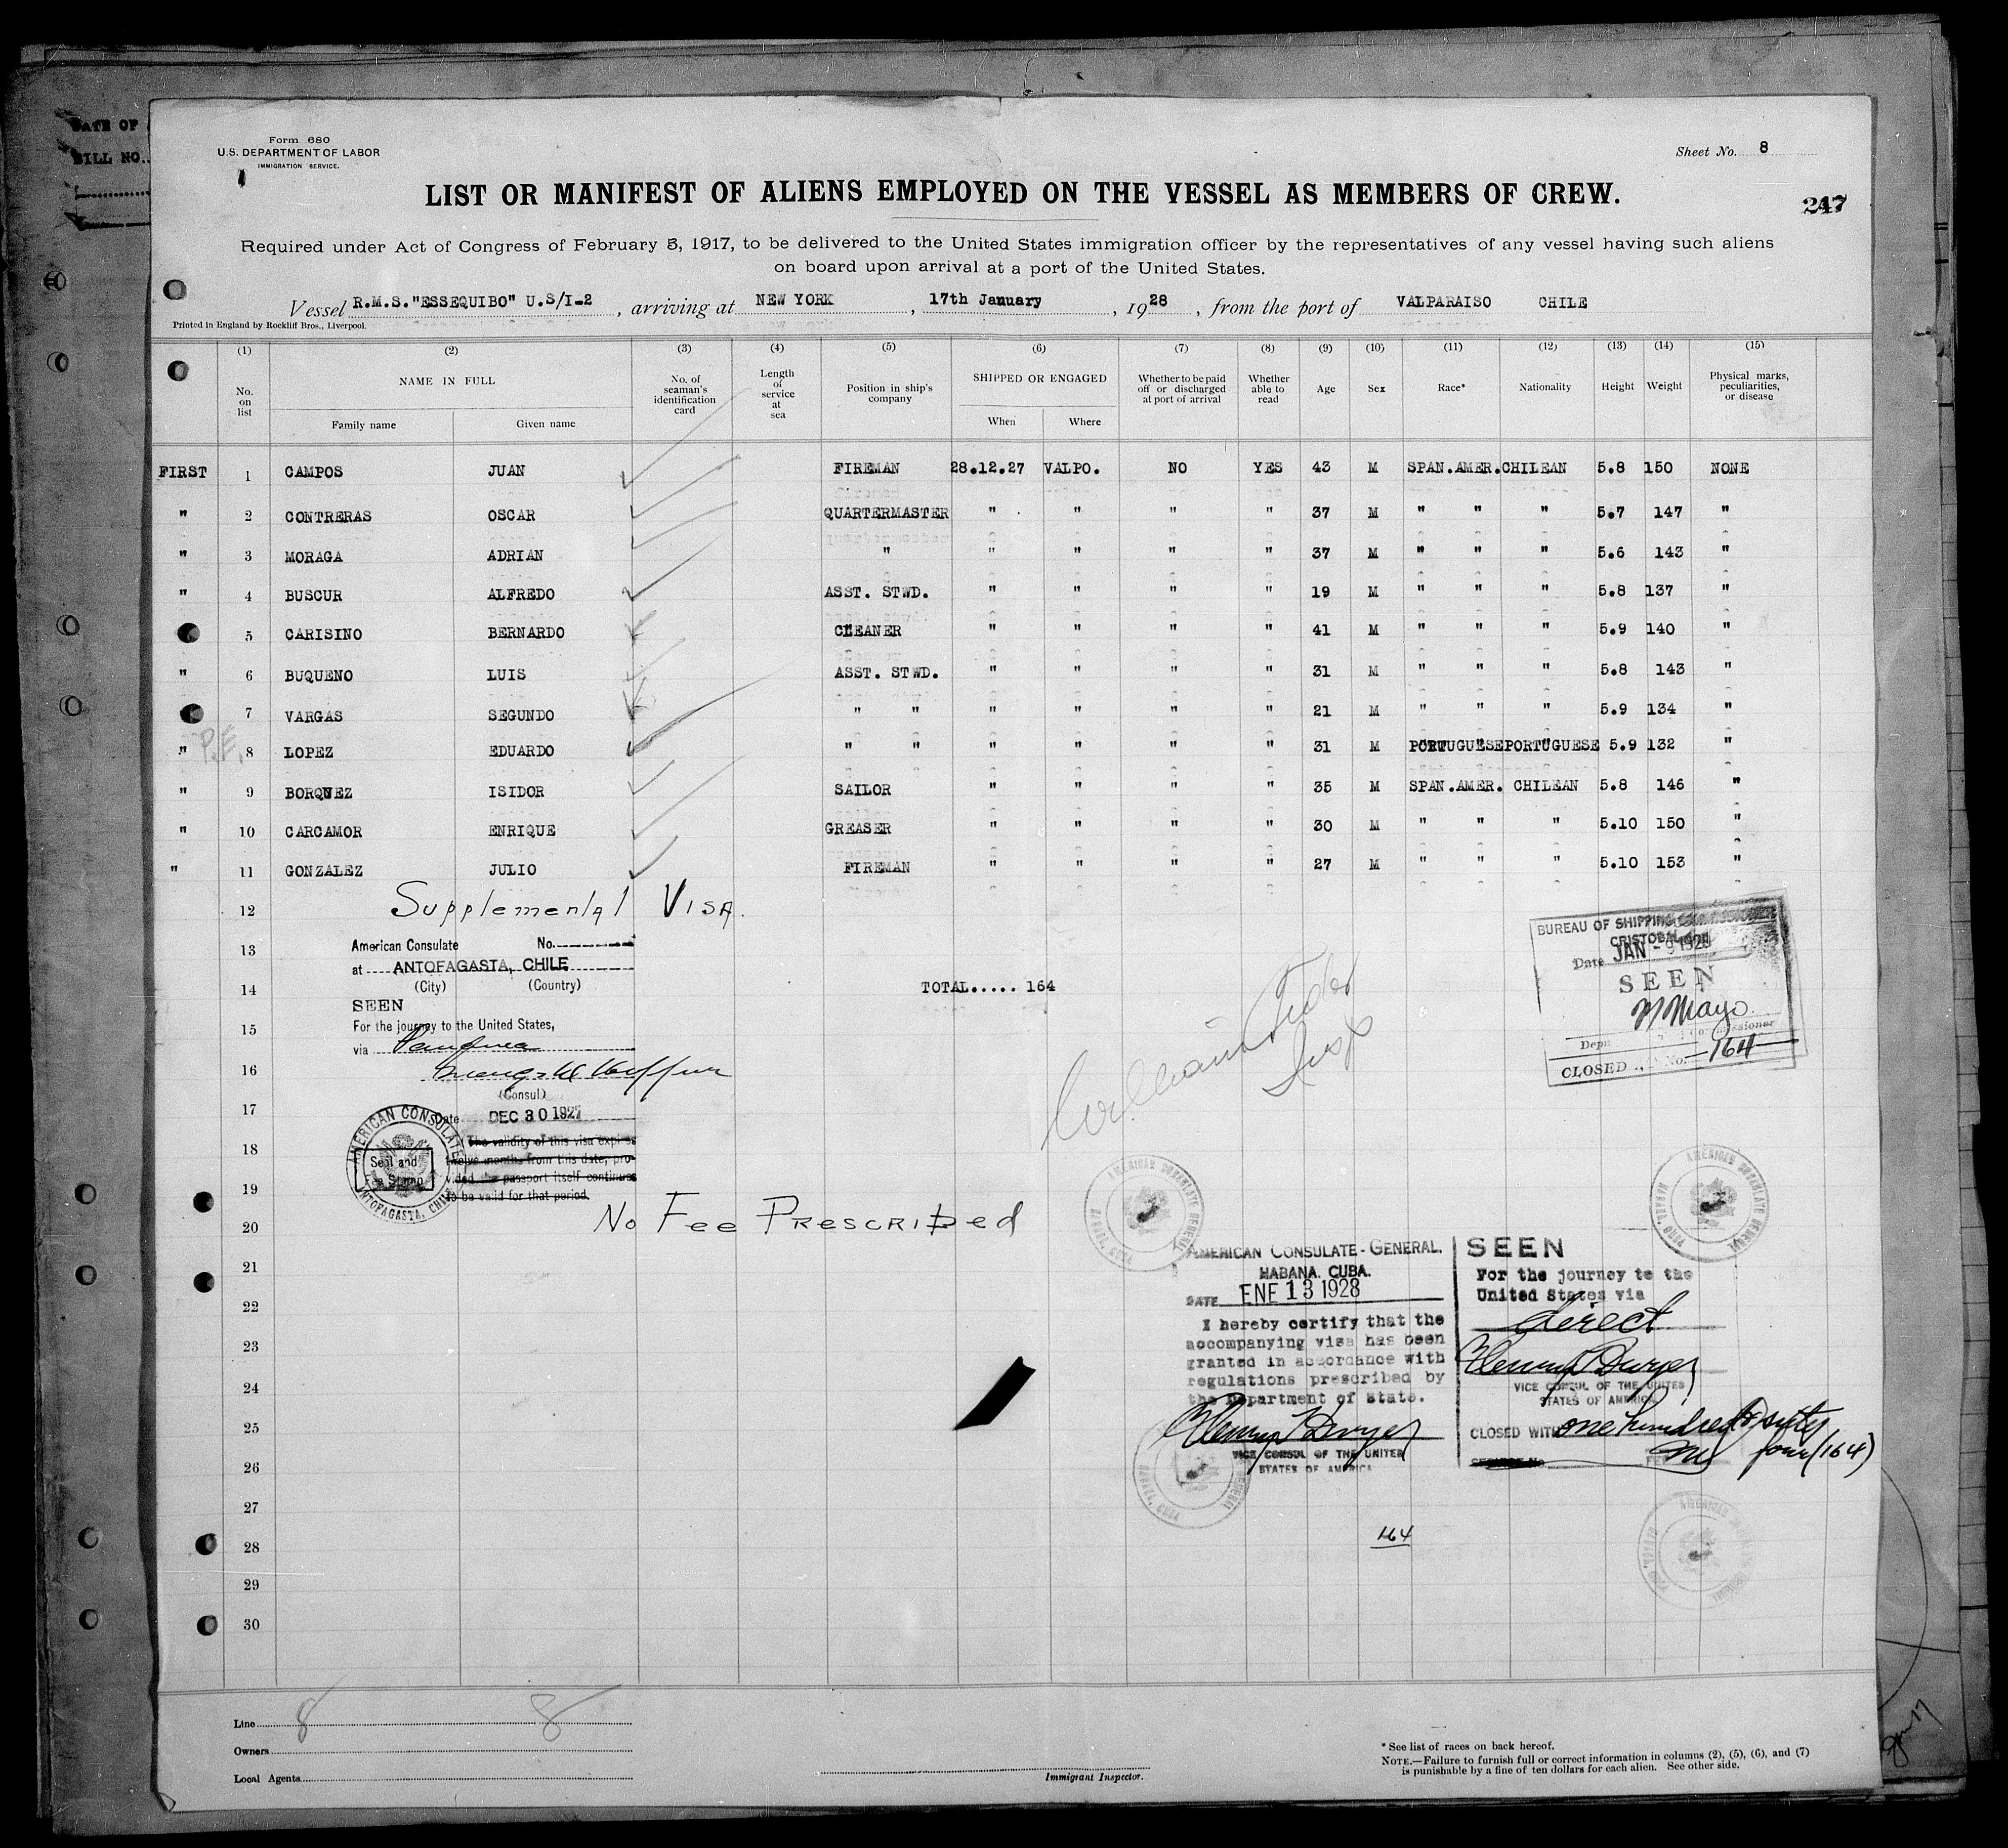 DATE OF
BILL NO.
Form 680
U.S. DEPARTMENT OF LABOR
IMMIGRATION SERVICE.
Sheet No. 8
LIST OR MANIFEST OF ALIENS EMPLOYED ON THE VESSEL AS MEMBERS OF CREW.
247
Required under Act of Congress of February 5, 1917, to be delivered to the United States immigration officer by the representatives of any vessel having such aliens
on board upon arrival at a port of the United States.
Vessel R.M.S."ESSEQUIBO" U.S/I-2, arriving at NEW YORK, 17th January, 1928, from the port of VALPARAISO CHILE
Printed in England by Rockliff Bros., Liverpool.
(1) (2) (3) (4) (5) (6) (7) (8) (9) (10) (11) (12) (13) (14) (15)
No. on list NAME IN FULL Family name Given name No. of seaman's identification card Length of service at sea Position in ship's company SHIPPED OR ENGAGED When Where Whether to be paid off or discharged at port of arrival Whether able to read Age Sex Race* Nationality Height Weight Physical marks, peculiarities, or disease
FIRST 1 CAMPOS JUAN FIREMAN 28.12.27 VALPO. NO YES 43 M SPAN.AMER. CHILEAN 5.8 150 NONE
" 2 CONTRERAS OSCAR QUARTERMASTER " " " " 37 M " " " 5.7 147 "
" 3 MORAGA ADRIAN " " " " " 37 M " " " 5.6 143 "
" 4 BUSCUR ALFREDO ASST. STWD. " " " " 19 M " " " 5.8 137 "
5 CARISINO BERNARDO CLEANER " " " " 41 M " " " 5.9 140 "
" 6 BUQUENO LUIS ASST. STWD. " " " " 31 M " " " 5.8 143 "
7 VARGAS SEGUNDO " " " " " " 21 M " " " 5.9 134 "
" P.E. 8 LOPEZ EDUARDO " " " " " " 31 M PORTUGUESE PORTUGUESE 5.9 132 "
" 9 BORQUEZ ISIDOR SAILOR " " " " 35 M SPAN.AMER. CHILEAN 5.8 146 "
" 10 CARCAMOR ENRIQUE GREASER " " " " 30 M " " " 5.10 150 "
" 11 GONZALEZ JULIO FIREMAN " " " " 27 M " " " 5.10 153 "
12 Supplemental Visa.
13 American Consulate No.
at ANTOFAGASTA, CHILE
(City) (Country)
14 TOTAL..... 164
SEEN
15 For the journey to the United States,
via
16
(Consul)
17 Date DEC 30 1927
18 The validity of this visa expires
twelve months from this date, pro-
vided the passport itself continues
19 to be valid for that period.
AMERICAN CONSULATE
ANTOFAGASTA, CHILE
Seal and
Fee Stamp
20 No Fee Prescribed
21
22
23
24
25
26
27
28
29
30
BUREAU OF SHIPPING COMMISSIONER
CRISTOBAL
Date JAN - 9 1928
SEEN
M Mayo
Commissioner
CLOSED No. 164
William
Insp
AMERICAN CONSULATE GENERAL
HABANA, CUBA
AMERICAN CONSULATE GENERAL
HABANA, CUBA
AMERICAN CONSULATE-GENERAL,
HABANA, CUBA.
DATE ENE 13 1928
I hereby certify that the
accompanying visa has been
granted in accordance with
regulations prescribed by
the Department of State.
VICE CONSUL OF THE UNITED
STATES OF AMERICA
SEEN
For the journey to the
United States via
direct
VICE CONSUL OF THE UNITED
STATES OF AMERICA
CLOSED WITH one hundred & sixty
four (164)
SERVICE No. FEE
164
Line 8 8
Owners
Local Agents
Immigrant Inspector.
* See list of races on back hereof.
NOTE.—Failure to furnish full or correct information in columns (2), (5), (6), and (7)
is punishable by a fine of ten dollars for each alien. See other side.